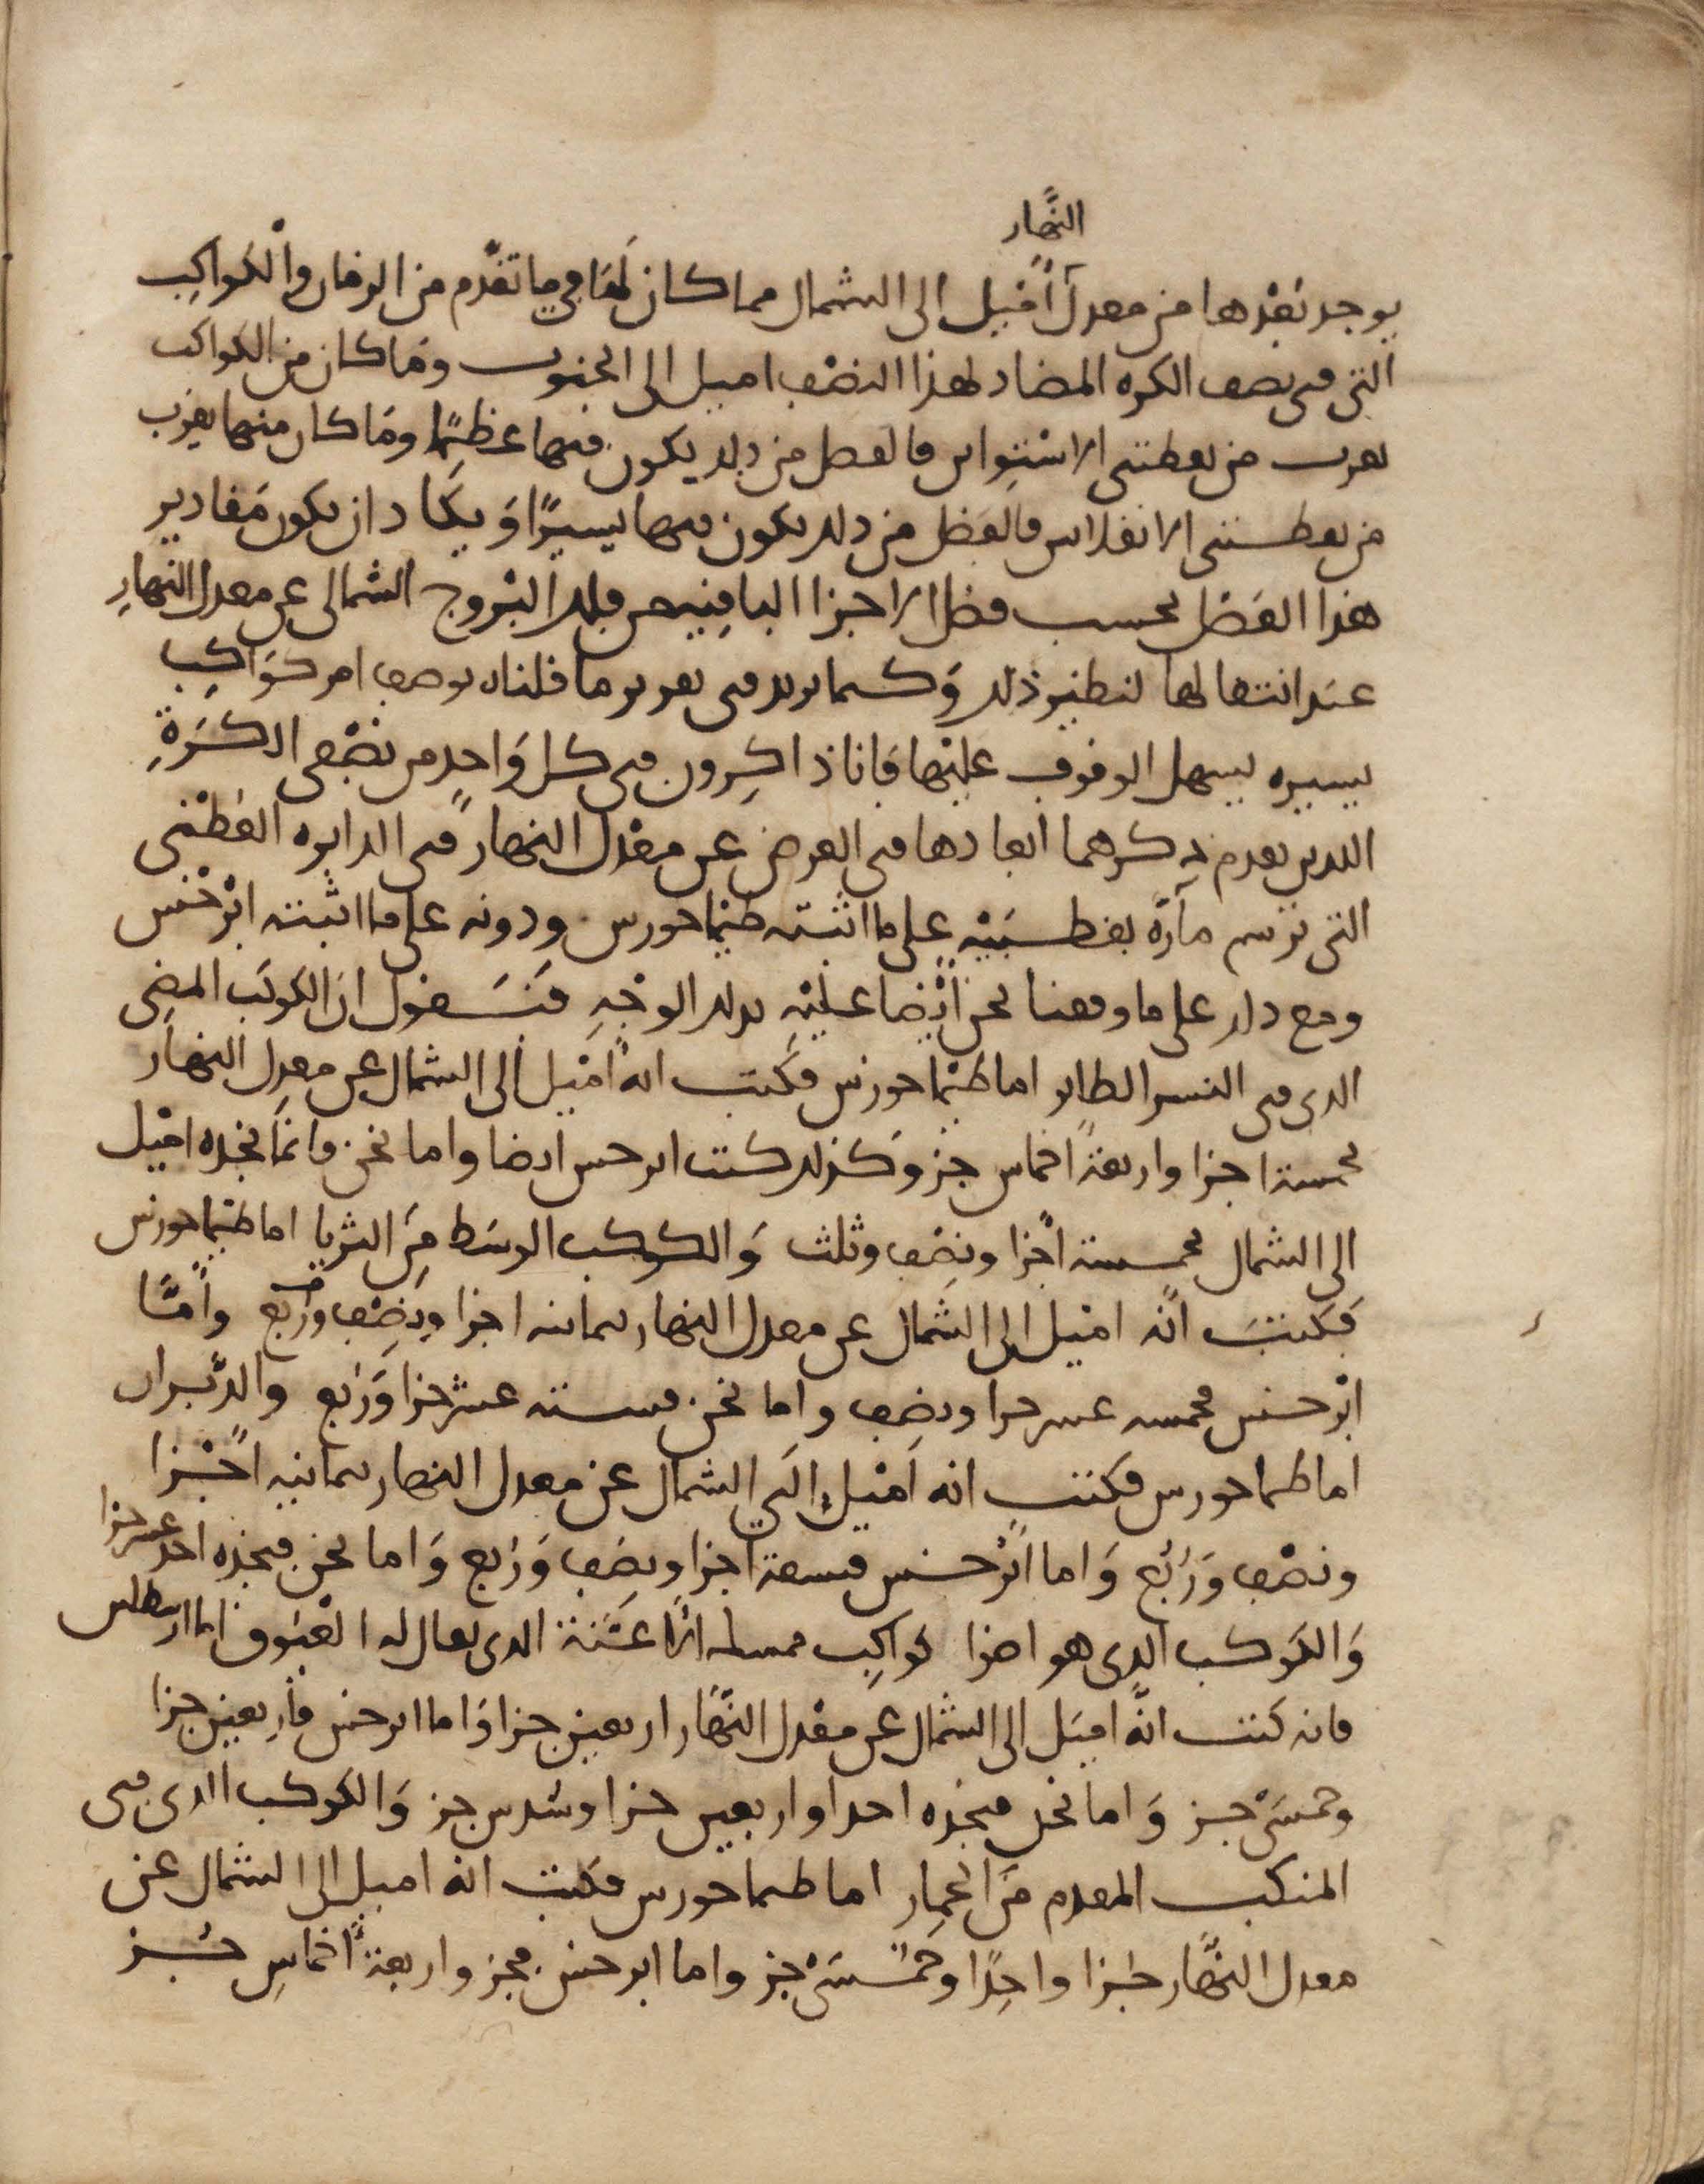 النهار
يوجد بعدها من معدل أميل الى الشمال مما كان لها في ما تقدم من الزمان والكواكب
التي في نصف الكره المضاد لهذا النصف اميل الى الجنوب وما كان من الكواكب
بقرب من نقطتي الاستواين فالفضل من ذلك يكون فيها عظيما وما كان منها بقرب
من نقطتي الانقلابين فالفضل من ذلك يكون فيها يسيرا ويكاد ان يكون مقادير
هذا الفضل بحسب فضل الاجزا الباقية من فلك البروج الشمالي عن معدل النهار
عند انتقالها لنطبيق ذلك وكما نريد في تقرير ما قلناه بوصف امر كواكب
يسيره يسهل الوقوف عليها فانا ذاكرون في كل واحد من نصفي الكرة
اللذين تقدم ذكرهما ابعادها في العرض عن معدل النهار في الدايره العظمى
التي ترسم مارة بقطبيه على ما اثبته طيماخورس ودونه على ما اثبته ابرخس
ومع ذلك على ما وقفنا نحن أيضا عليه بذلك الوجه فنقول ان الكوكب المضي
الذي في النسر الطاير اما طيماخورس فكتب انه اميل الى الشمال عن معدل النهار
بخمسة اجزا واربعة اخماس جز وكذلك كتب ابرخس ايضا واما نحن فانما نجده اميل
الى الشمال بخمسة اجزا ونصف وثلث والكوكب الوسط من الثريا اما طيماخورس
فكتب انه اميل الى الشمال عن معدل النهار بثمانيه اجزا ونصف وربع وأما
ابرخس فخمسه عشر جزا ونصف واما نحن فستة عشر جزا وربع والدبران
اما طيماخورس فكتب انه اميل إلى الشمال عن معدل النهار ثمانيه اجزا
ونصف وربع واما ابرخس فتسعة اجزا ونصف وربع واما نحن فنجده احد عشر جزا
والكوكب الذي هو اضوا كواكب ممسك الاعنة الذي يقال له العيوق اما ارسطلس
فانه كتب انه اميل الى الشمال عن معدل النهار اربعين جزا واما ابرخس فاربعين جزا
وخمسي جز واما نحن فنجده احدا واربعين جزا وسدس جز والكوكب الذي في
المنكب المقدم من الجبار اما طيماخورس فكتب انه اميل الى الشمال عن
معدل النهار جزا واحدا وخمسي جز واما ابرخس فجز واربعة أخماس جز